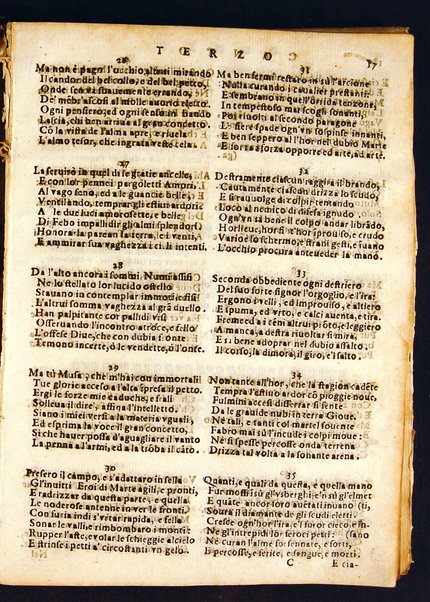 TERZO
17
26
Ma non è pagn l'occhio
Il candor del bel collo, e del bel petto,
Onde sen và soauemente errando,
De' mẽbr' ascosi al nobile auorio eletto.
Ogni pensiero, ed ogni
Lascia, ch'iten
Cõ la vista de l'alma apre, e riuela
L'almo tesor, che ingrata veste cela.
27
La seruiro in quel dì le gratie ancelle,
E con lor pennei pargoletti Amori,
Al vago seno, ed a le guancie belle,
Ventilando, temprar gli estiui ardori
A le due ludi amorosette, e belle
Di Febo impallidir gli almi splendori
Honora la parea la terra, e i venti,
E ammirar sua vaghezza i cieli intenti.
28
Da l'alto ancora i sommi Numi assisi
Ne lo stellato lor lucido ostello
Stauano in contemplar immoti, e fisi
L'altrui somma vaghezza al grã duello.
Han palpitante cor quei diui visi
Osseruando l'incontro atroce, e fello
L'offese Diue, che con dubia fronte
Temono incerte, ò le vendette, ò l'onte.
29
Ma tù Musa, che m'hai con immortali
Tue glorie acceso a l'alta spresa il petto.
Ergi le forze mie caduche, e frali
Solleua il dire, affina l'intelletto.
Siano i miei versi a la materia vguali,
Ed esprima la voce il gran concetto,
Si che hauer possa d'aguagliare il vanto
La penna a l'armi, ed a la trõba il cãto.
30
Presero il campo, e s'adattaro in sella
Gl'inuitti Eroi di Marte agili, e pronti,
E radrizzar da questa parte, e quella
Le noderose antenne in ver le fronti.
Con furia indi s'vrtar rapida, e fella
Sonar le valli, e rimbombaro i monti
Rupper l'aste, e volar le schieggie al cielo
E strinse i petti a' circostanti vn gelo.
31
Ma ben fermi restaro in su l'arcione
Nulla curando i caualier prestanti:
E sembrano in quell'orrida tenzone,
In tempestoso mar scogli sonanti,
Poi riuolti al secondo paragone
Le fiere spade ogn'vn sospinse innanti,
E ben seppero al hor nel dubio Marte
E forza a forza opporre ed arte, ad arte.
32
Destramente ciascun raggira il brando,
Cautamente ciascun drizza lo scudo,
E si riauolge di colpir tentando
Loco al nemico di difesa ignudo.
Ogn'vn sà bene il colpo andar librādo,
Hor lieue, hor si finge, hor schiuo, e crudo
Vario è lo schermo, e strani gesti, e'l uano
L'occhio procura antiueder la mano.
33
Seconda obbediente ogni destriero
Del suo forte signor l'orgoglio, e l'ira;
Ergono i velli, ed improuiso, e altiero
E spuma, ed vrto, e calci auenta, e tira
Freme ed a i cēni altrui pròto, e leggiero
A manca, a destra riuoltar si mira,
E sì bene adoprar nel dubio assalto
Il corso, la dimora, il giro, e'l salto.
34
Non tante all'hor, che la stagion cadēte
Tempra l'estiuo ardor cõ pioggie noue,
Fulmini accesi differrar si sente
Da le grauide nubi in terra Gioue,
Nè tali, e tanti col martel souente
Fabro mai sù l'incudi colpi moue:
Nè si spesse percosse onda terrena
Drizza tal volta a la sonante arena.
35
Quanti, e quali da questa, e quella mano
Fur mossi sù gl'vsberghi e sù gl'elmet
E quãte ancor loro auētati inuano (ti,
Soura il diamante de gli scudi eletti.
Cresce ogn'hor l'ira, e'l furor cieco e in-
Ne gl'intrepidi lor feroci petti: (sano
Nè curan l'alme lor sennare, e forti,
E percosse, e ferite, e sangue, e morti.
C
E cia-